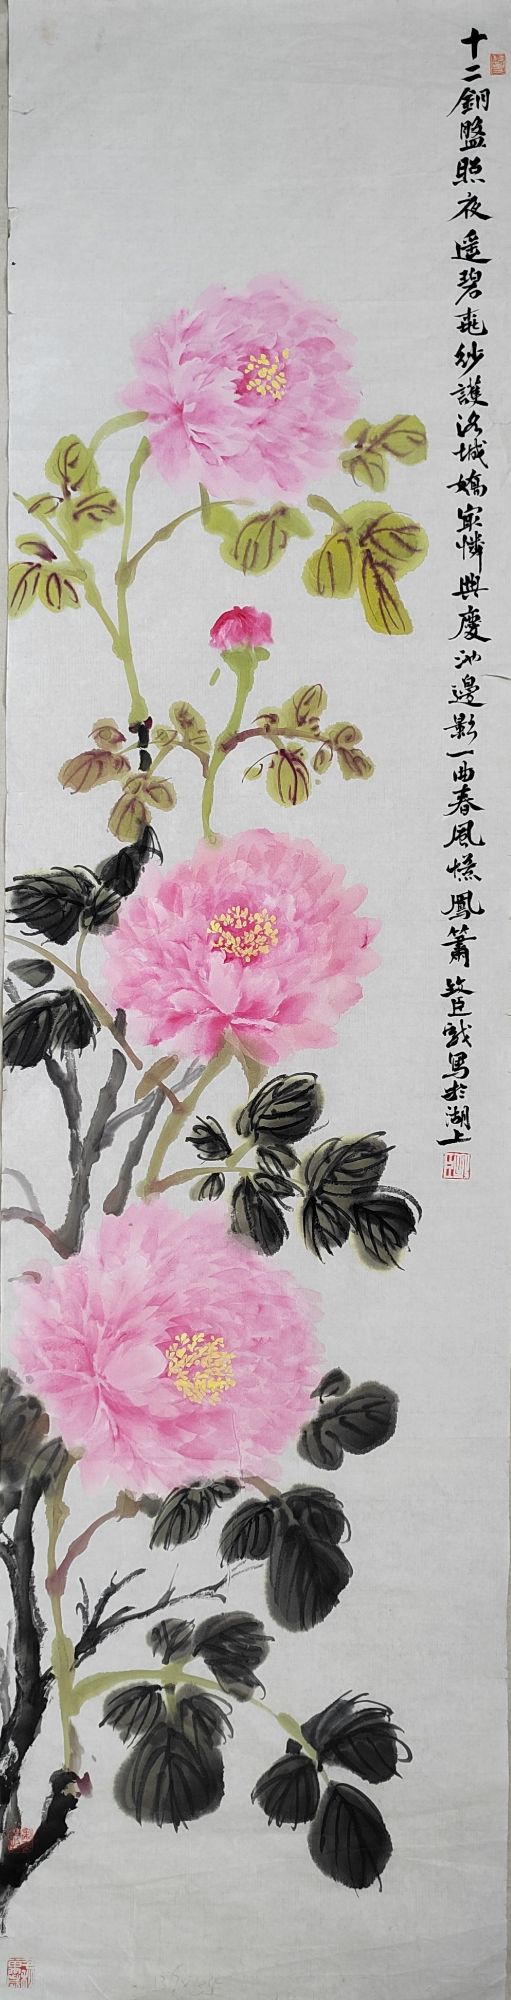 十二銅盤照夜遥碧桃紗護洛城嬌寂憐興慶池邊影一曲春風憶鳳簫 致臣戲寫於湖上